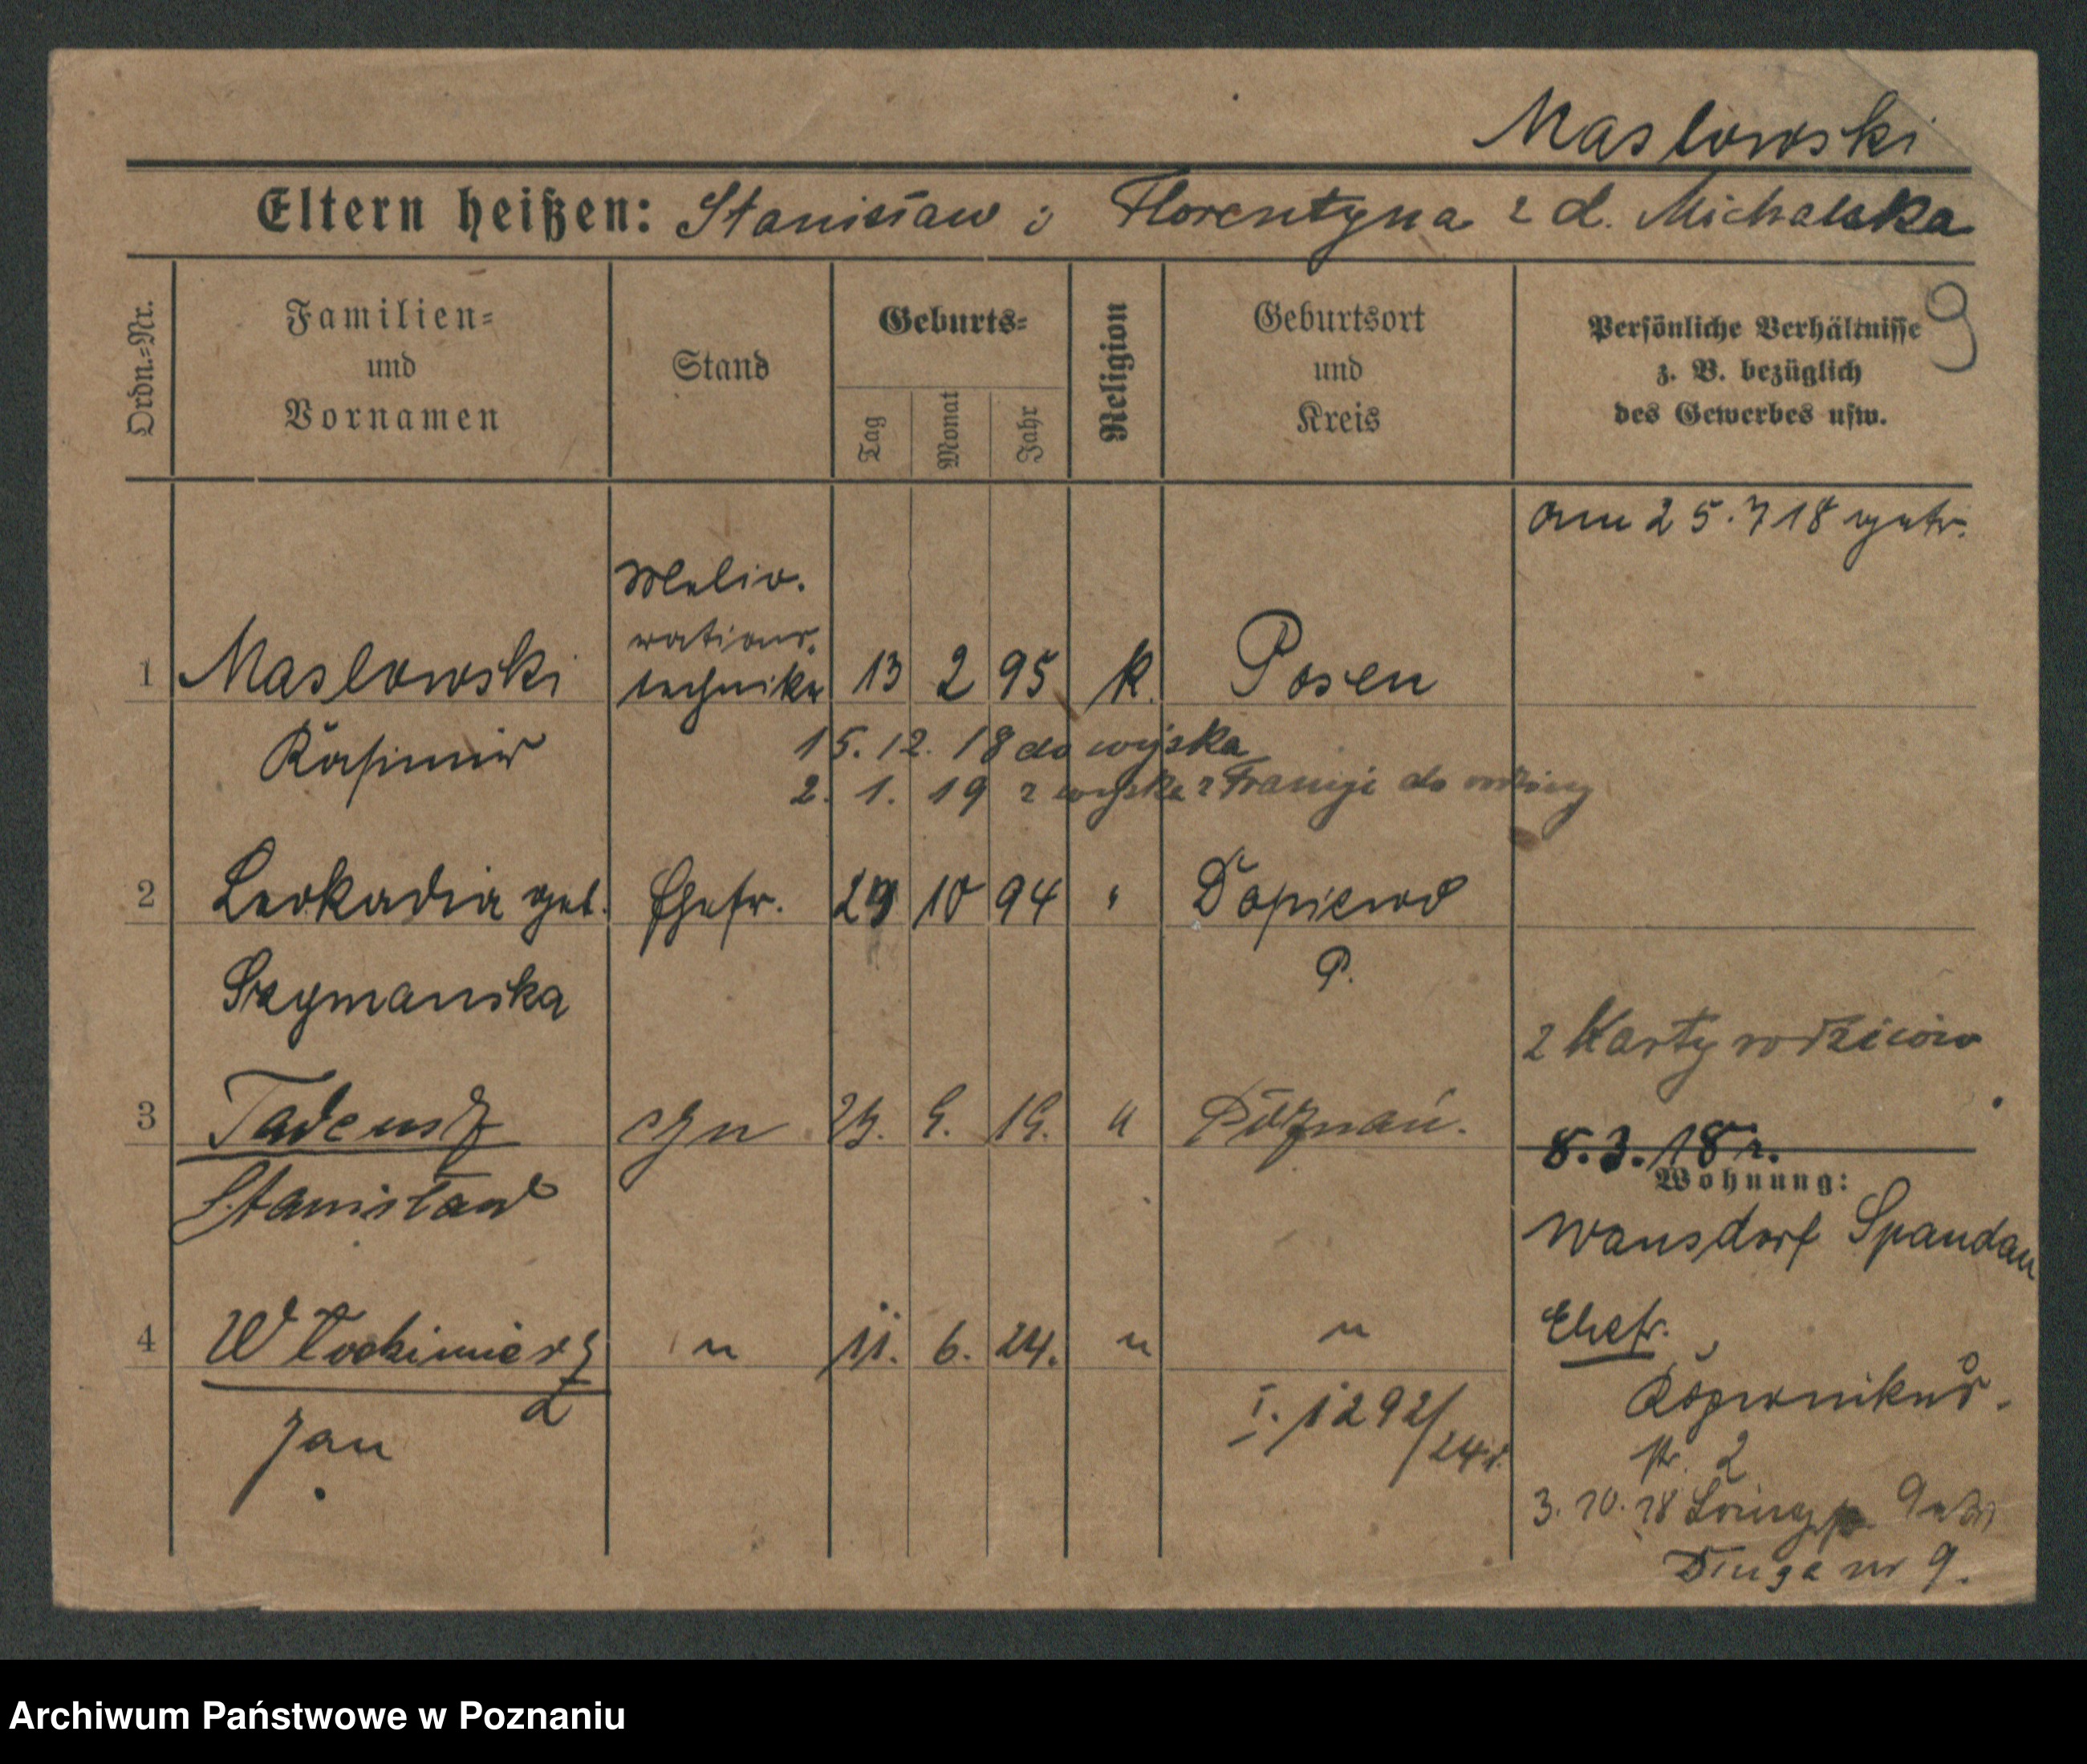 Maslowski
Eltern heißen: Stanisław i Florentyna z d. Michalska
9
Ordn.=Nr.
Familien=
und
Vornamen
Stand
Geburts=
Tag
Monat
Jahr
Religion
Geburtsort
und
Kreis
Persönliche Verhältnisse
z. B. bezüglich
des Gewerbes usw.
am 25.7 18 getr.
Melio-
rations-
1 Maslowski techniker 13 2 95 k. Posen
Kasimir
15. 12. 18 do wojska
2. 1. 19 z wojska z Francji do rodziny
2 Leokadia geb. Ehefr. 29 10 94 " Dopiewo
P.
Szymanska
2 Karty rodziców
3 Tadeusz syn 29. 9. 19. " Poznań.
Stanisław
8.3.18 r.
Wohnung:
Wansdorf Spandau
4 Włodzimierz " 11. 6. 24. " "
Jan
I. 1292/24 r.
Ehefr.
Kopernikus-
str. 2
3. 10. 18
Długa nr 9.
Archiwum Państwowe w Poznaniu